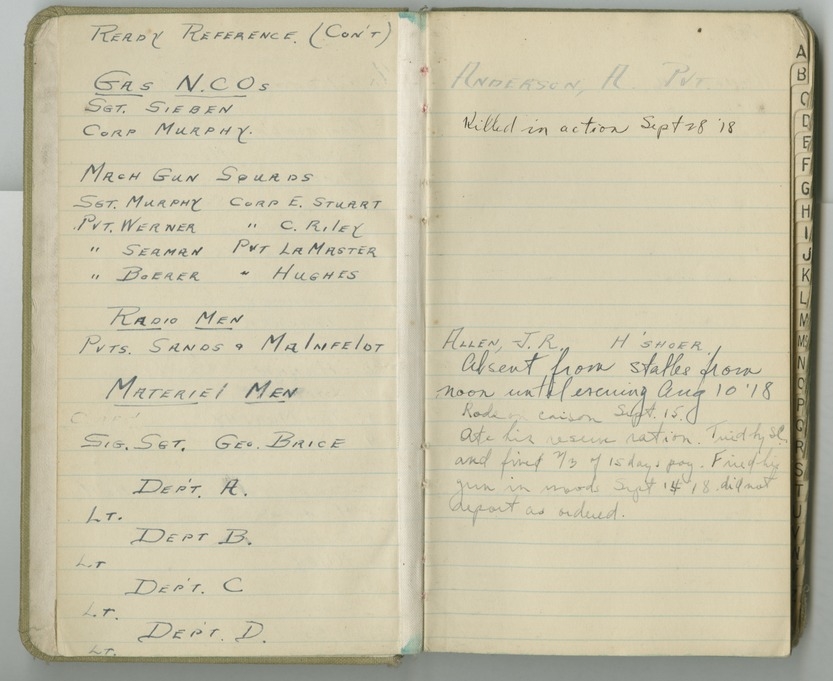 READY REFERENCE. (CON'T)
GAS N.C.Os
SGT. SIEBEN
CORP MURPHY.
MACH GUN SQUADS
SGT. MURPHY CORP E. STUART
PVT. WERNER " C. RILEY
" SEAMAN PVT LAMASTER
" BOERER " HUGHES
RADIO MEN
PVTS. SANDS & MALNFELDT
MATERIEL MEN
SIG. SGT. GEO. BRICE
DEP'T. A.
LT.
DEPT B.
LT
DEP'T. C
LT.
DEP'T. D.
LT.
ANDERSON, A. PVT.
Killed in action Sept 28 '18
ALLEN, J.R. H'SHOER
Absent from stables from
noon until evening Aug 10 '18
Rode on caison Sept. 15.
Ate his reserve ration. Tried by SC
and fined 2/3 of 15 days pay. Fired his
gun in woods Sept 14 18. did not
report as ordered.
A
B
C
D
E
F
G
H
I
J
K
L
M
Mc
N
O
P
Q
R
S
T
U